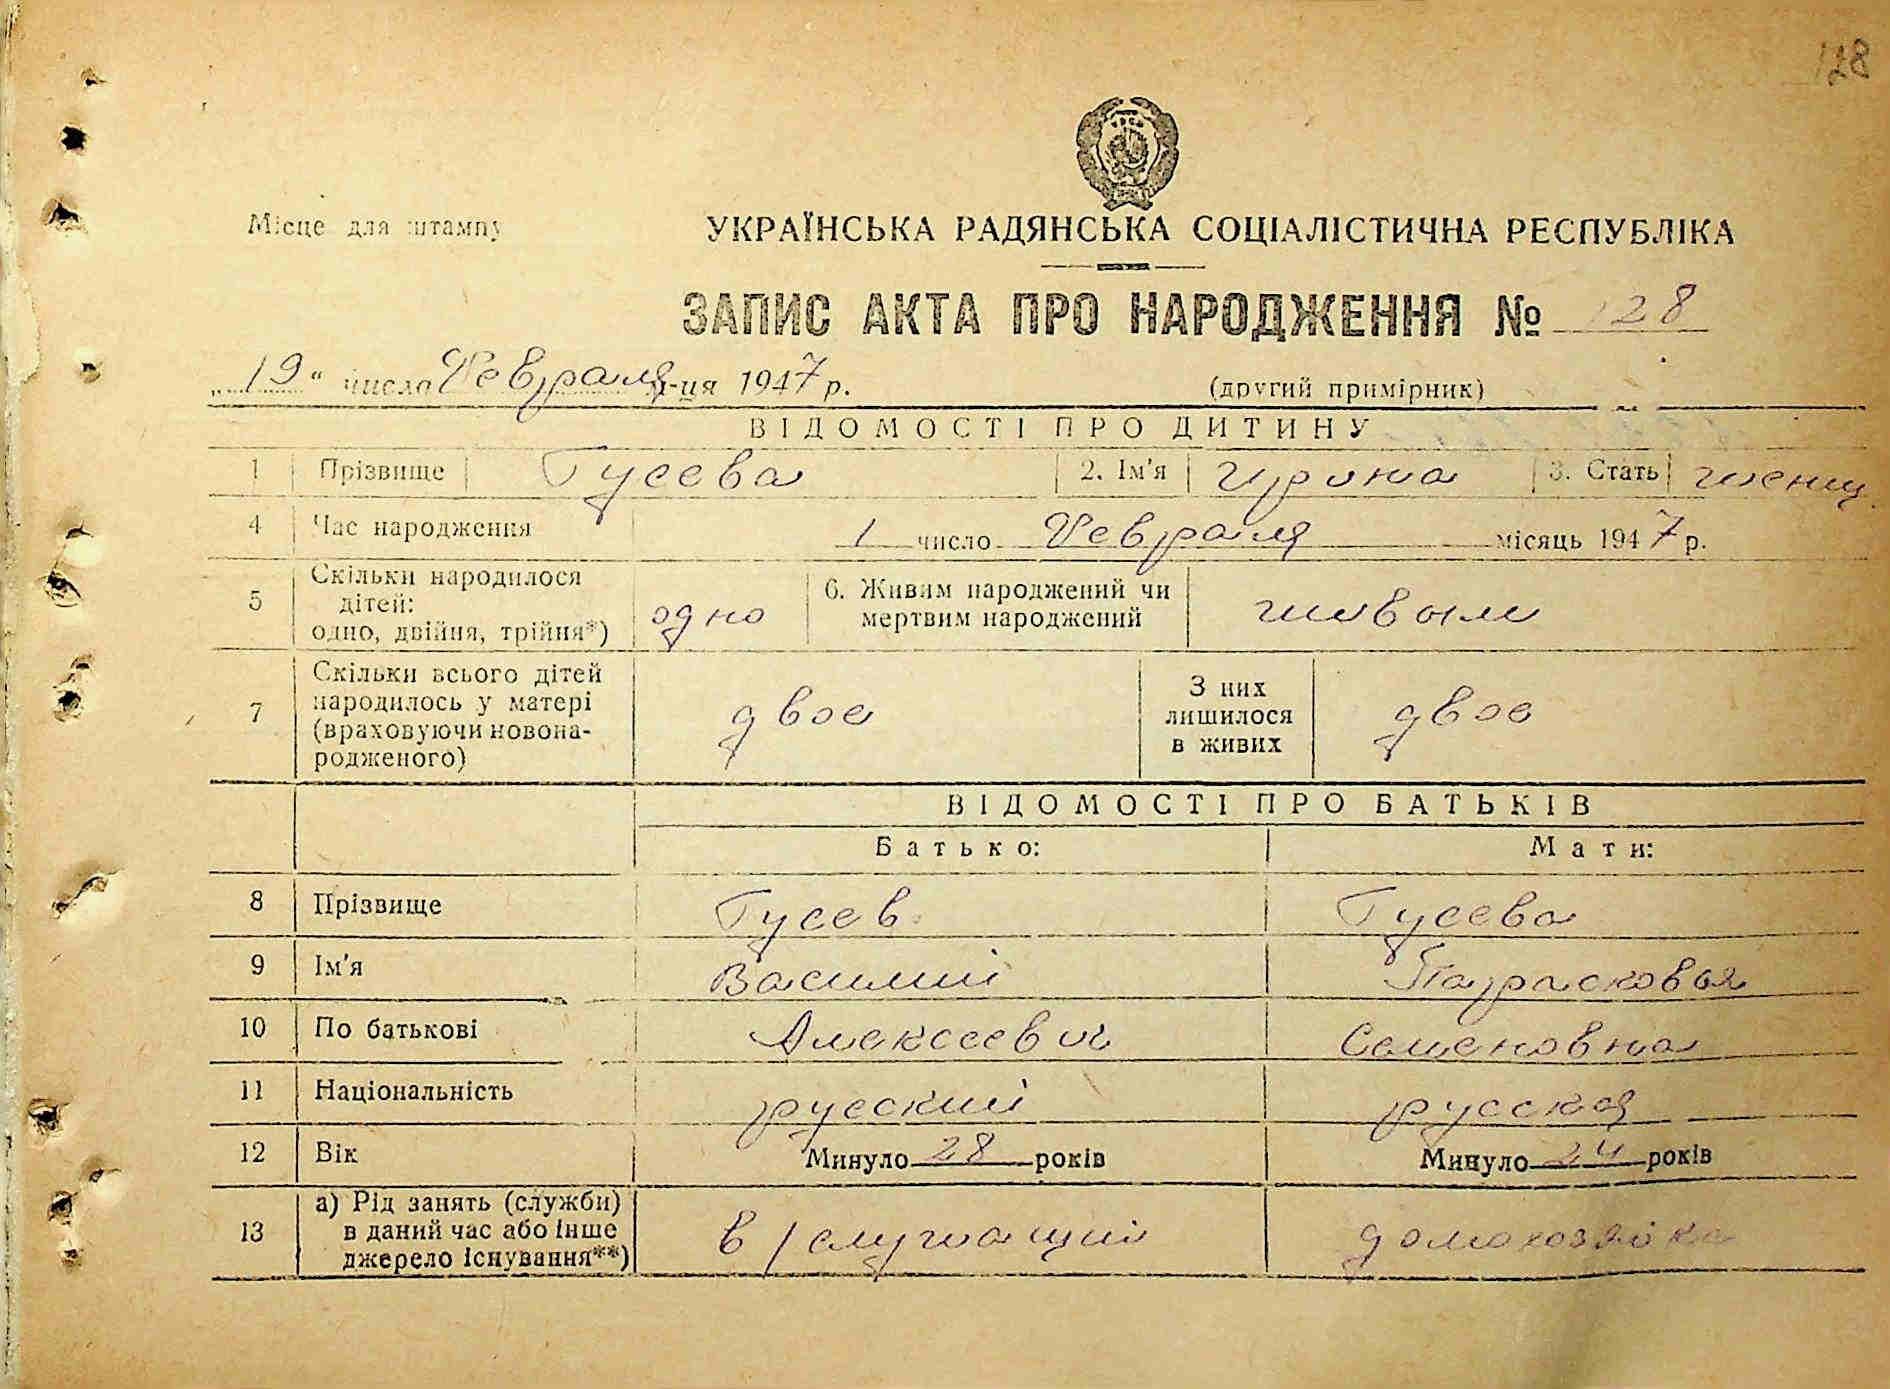 128
УРСР
Місце для штампу
УКРАЇНСЬКА РАДЯНСЬКА СОЦІАЛІСТИЧНА РЕСПУБЛІКА
ЗАПИС АКТА ПРО НАРОДЖЕННЯ № 128
„19“ число Февраля м-ця 1947 р. (другий примірник)
ВІДОМОСТІ ПРО ДИТИНУ
1 Прізвище Гусева 2. Ім'я Ирина 3. Стать женщ
4 Час народження 1 число Февраля місяць 1947 р.
5 Скільки народилося
дітей:
одно, двійня, трійня*) одно 6. Живим народжений чи
мертвим народжений живым
7 Скільки всього дітей
народилось у матері
(враховуючи новона-
родженого) двое З них
лишилося
в живих двое
ВІДОМОСТІ ПРО БАТЬКІВ
Батько: Мати:
8 Прізвище Гусев Гусева
9 Ім'я Василий Парасковья
10 По батькові Алексеевич Семеновна
11 Національність русский русская
12 Вік Минуло 28 років Минуло 24 років
13 а) Рід занять (служби)
в даний час або інше
джерело існування**) в/служащий домохозяйка